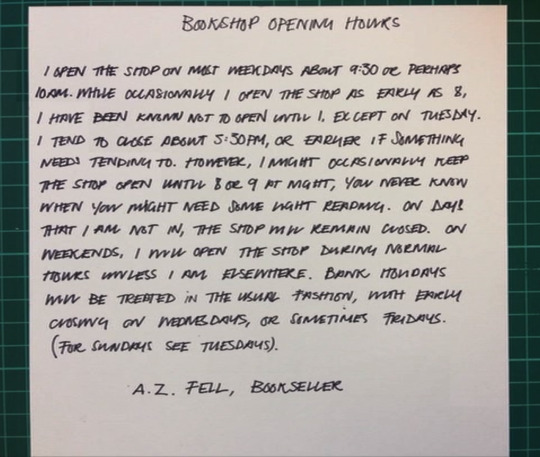 BOOKSHOP OPENING HOURS
I OPEN THE SHOP ON MOST WEEKDAYS ABOUT 9:30 OR PERHAPS
10AM. WHILE OCCASIONALLY I OPEN THE SHOP AS EARLY AS 8,
I HAVE BEEN KNOWN NOT TO OPEN UNTIL 1. EXCEPT ON TUESDAY.
I TEND TO CLOSE ABOUT 5:30PM, OR EARLIER IF SOMETHING
NEEDS TENDING TO. HOWEVER, I MIGHT OCCASIONALLY KEEP
THE SHOP OPEN UNTIL 8 OR 9 AT NIGHT, YOU NEVER KNOW
WHEN YOU MIGHT NEED SOME LIGHT READING. ON DAYS
THAT I AM NOT IN, THE SHOP WILL REMAIN CLOSED. ON
WEEKENDS, I WILL OPEN THE SHOP DURING NORMAL
HOURS UNLESS I AM ELSEWHERE. BANK HOLIDAYS
WILL BE TREATED IN THE USUAL FASHION, WITH EARLY
CLOSING ON WEDNESDAYS, OR SOMETIMES FRIDAYS.
(FOR SUNDAYS SEE TUESDAYS).
A.Z. FELL, BOOKSELLER